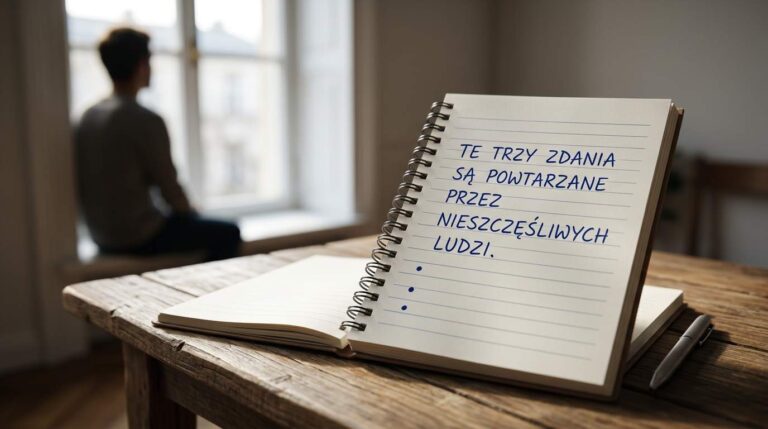 TE TRZY ZDANIA
SĄ POWTARZANE
PRZEZ
NIESZCZĘŚLIWYCH
LUDZI.
•
•
•